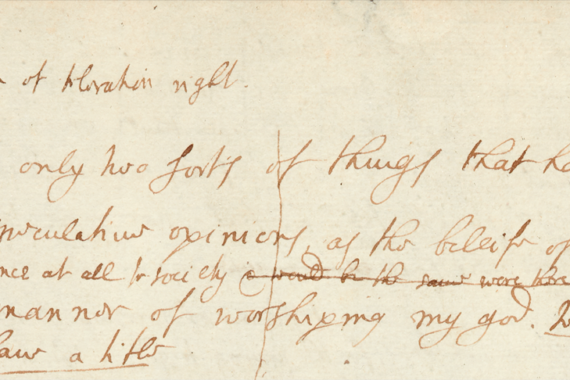 of toleration right.
only two sorts of things that ha
speculative opinions, as the beleife of
nce at all to society & would be the same were there
mannor of worshiping my god.
have a title